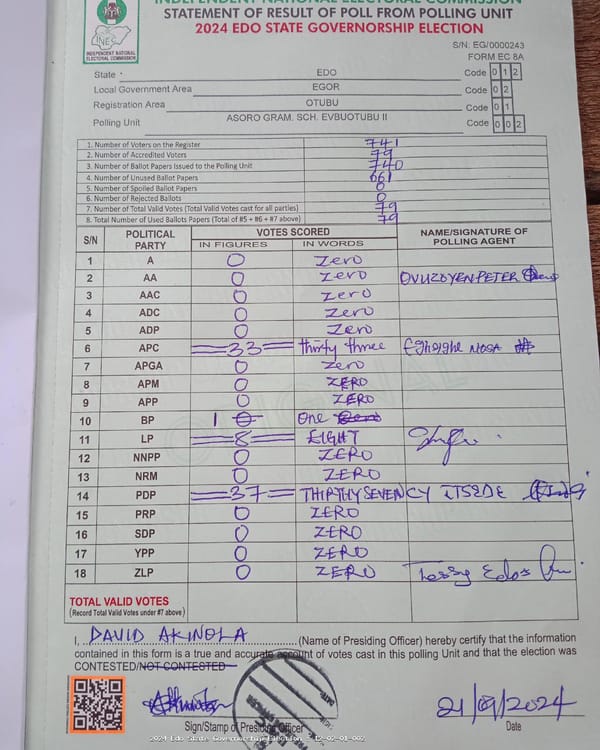 INDEPENDENT NATIONAL ELECTORAL COMMISSION
STATEMENT OF RESULT OF POLL FROM POLLING UNIT
2024 EDO STATE GOVERNORSHIP ELECTION
INEC
INDEPENDENT NATIONAL
ELECTORAL COMMISSION
S/N: EG/0000243
FORM EC 8A
State EDO Code 0 1 2
Local Government Area EGOR Code 0 2
Registration Area OTUBU Code 0 1
Polling Unit ASORO GRAM. SCH. EVBUOTUBU II Code 0 0 2
1. Number of Voters on the Register 741
2. Number of Accredited Voters 79
3. Number of Ballot Papers Issued to the Polling Unit 740
4. Number of Unused Ballot Papers 661
5. Number of Spoiled Ballot Papers 0
6. Number of Rejected Ballots 0
7. Number of Total Valid Votes (Total Valid Votes cast for all parties) 79
8. Total Number of Used Ballots Papers (Total of #5 + #6 + #7 above) 79
S/N POLITICAL PARTY VOTES SCORED NAME/SIGNATURE OF POLLING AGENT
IN FIGURES IN WORDS
1 A 0 Zero
2 AA 0 Zero OVUZOYEN PETER
3 AAC 0 Zero
4 ADC 0 Zero
5 ADP 0 Zero
6 APC 33 thirty three NOSA
7 APGA 0 Zero
8 APM 0 ZERO
9 APP 0 ZERO
10 BP 1 0 One Zero
11 LP 8 EIGHT
12 NNPP 0 ZERO
13 NRM 0 ZERO
14 PDP 37 THIRTHYSEVEN
15 PRP 0 ZERO
16 SDP 0 ZERO
17 YPP 0 ZERO
18 ZLP 0 ZERO Tessy Edos
TOTAL VALID VOTES
(Record Total Valid Votes under #7 above)
I, DAVID AKINOLA (Name of Presiding Officer) hereby certify that the information
contained in this form is a true and accurate account of votes cast in this polling Unit and that the election was
CONTESTED/NOT CONTESTED
21/09/2024
Sign/Stamp of Presiding Officer Date
2024 Edo State Governorship Election - 12-02-01-002